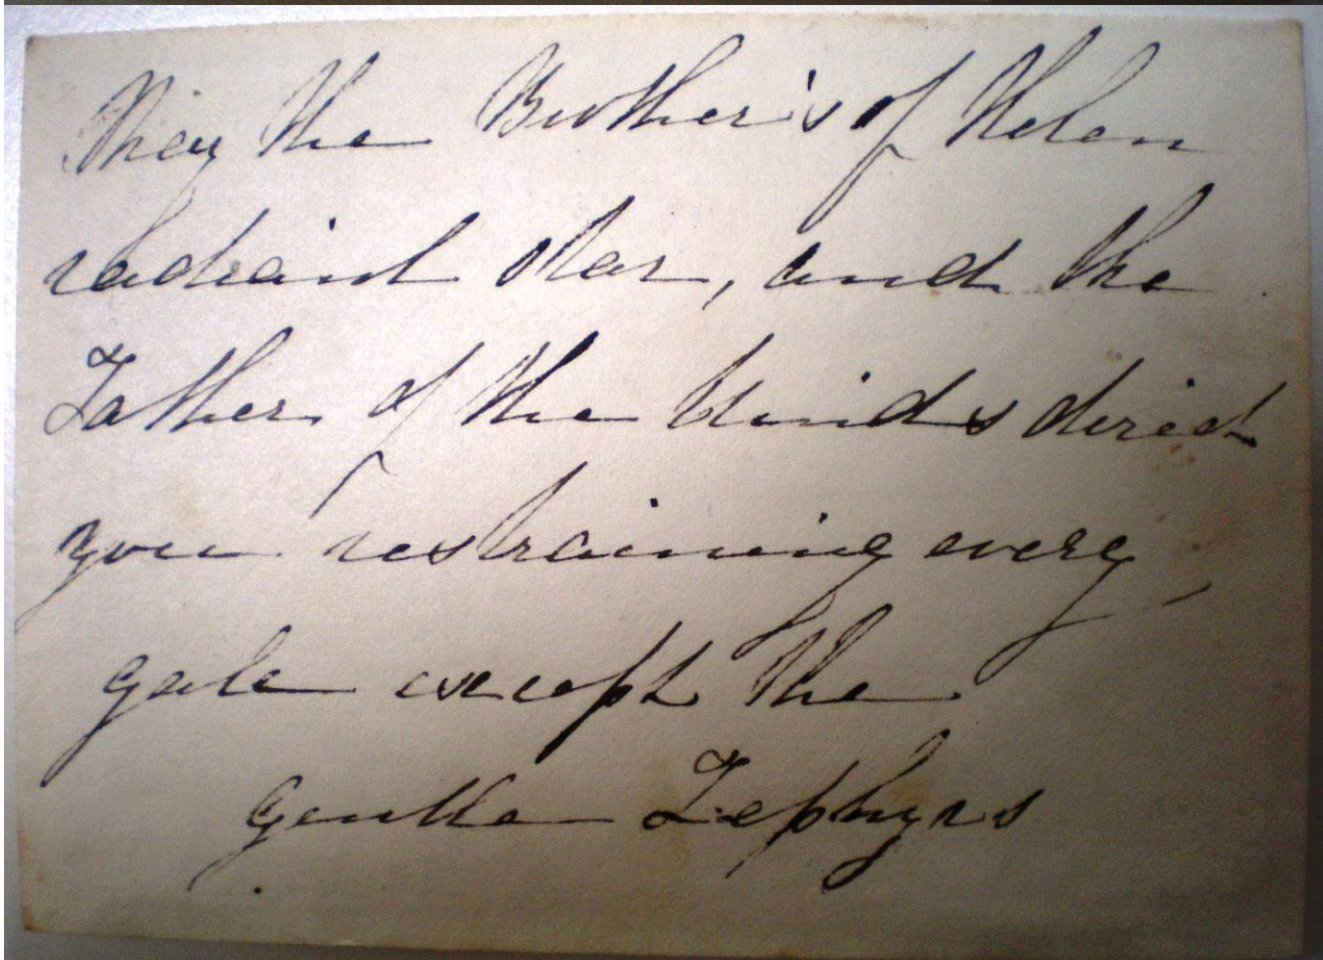 May the Brother's of Helen
radiant star, and the
Father of the Winds direct
you restraining every
gale except the
gentle Zephyrs